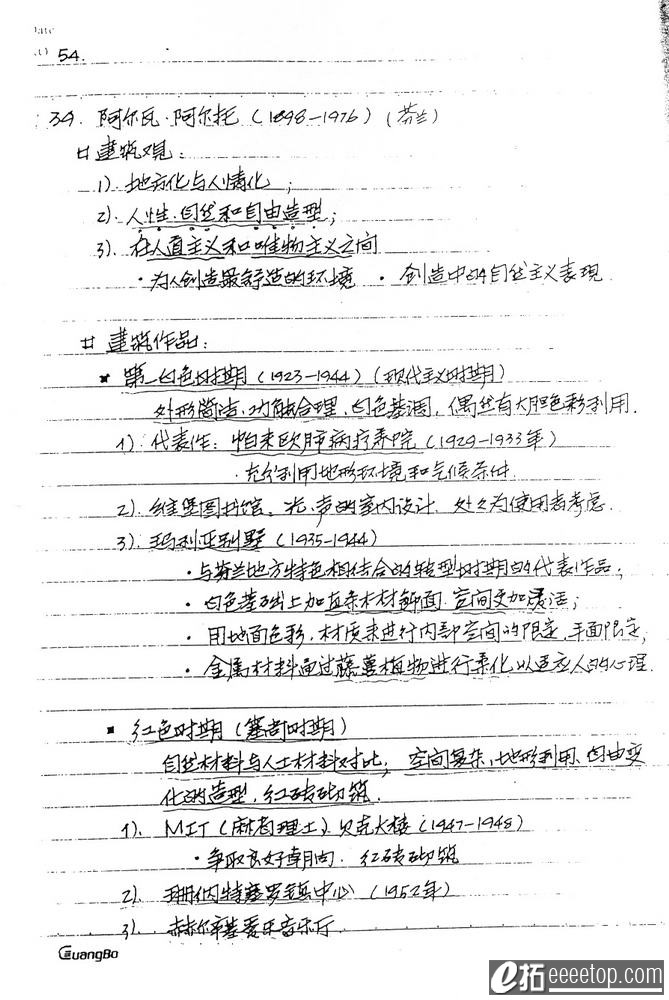 Date
54.
34. 阿尔瓦·阿尔托 (1898-1976) (芬兰)
建筑观:
1). 地方化与人情化;
2). 人性.自然和自由造型;
3). 在人道主义和唯物主义之间
·为人创造最舒适的环境 · 创造中的自然主义表现
建筑作品:
▪ 第一白色时期 (1923-1944) (现代主义时期)
外形简洁.功能合理.白色基调, 偶然有大胆色彩利用.
1). 代表作: 帕米欧肺病疗养院 (1929-1933年)
·充分利用地形环境和气候条件.
2). 维堡图书馆、光.声的室内设计. 处处为使用者考虑.
3). 玛利亚别墅 (1935-1944)
·与芬兰地方特色相结合的转型时期的代表作品;
·白色基础上加自然木材饰面. 空间更加灵活;
·用地面色彩.材质来进行内部空间的限定.平面限定,
·金属材料通过藤蔓植物进行柔化以适应人的心理.
▪ 红色时期 (塞奇时期)
自然材料与人工材料对比; 空间复杂.地形利用、自由变
化的造型.红砖砌筑.
1). MIT (麻省理工).贝克大楼 (1947-1948)
·争取良好朝向. 红砖砌筑
2). 珊纳特塞罗镇中心 (1952年)
3). 赫尔辛基爱乐音乐厅
GuangBo
e拓 eeeetop.com